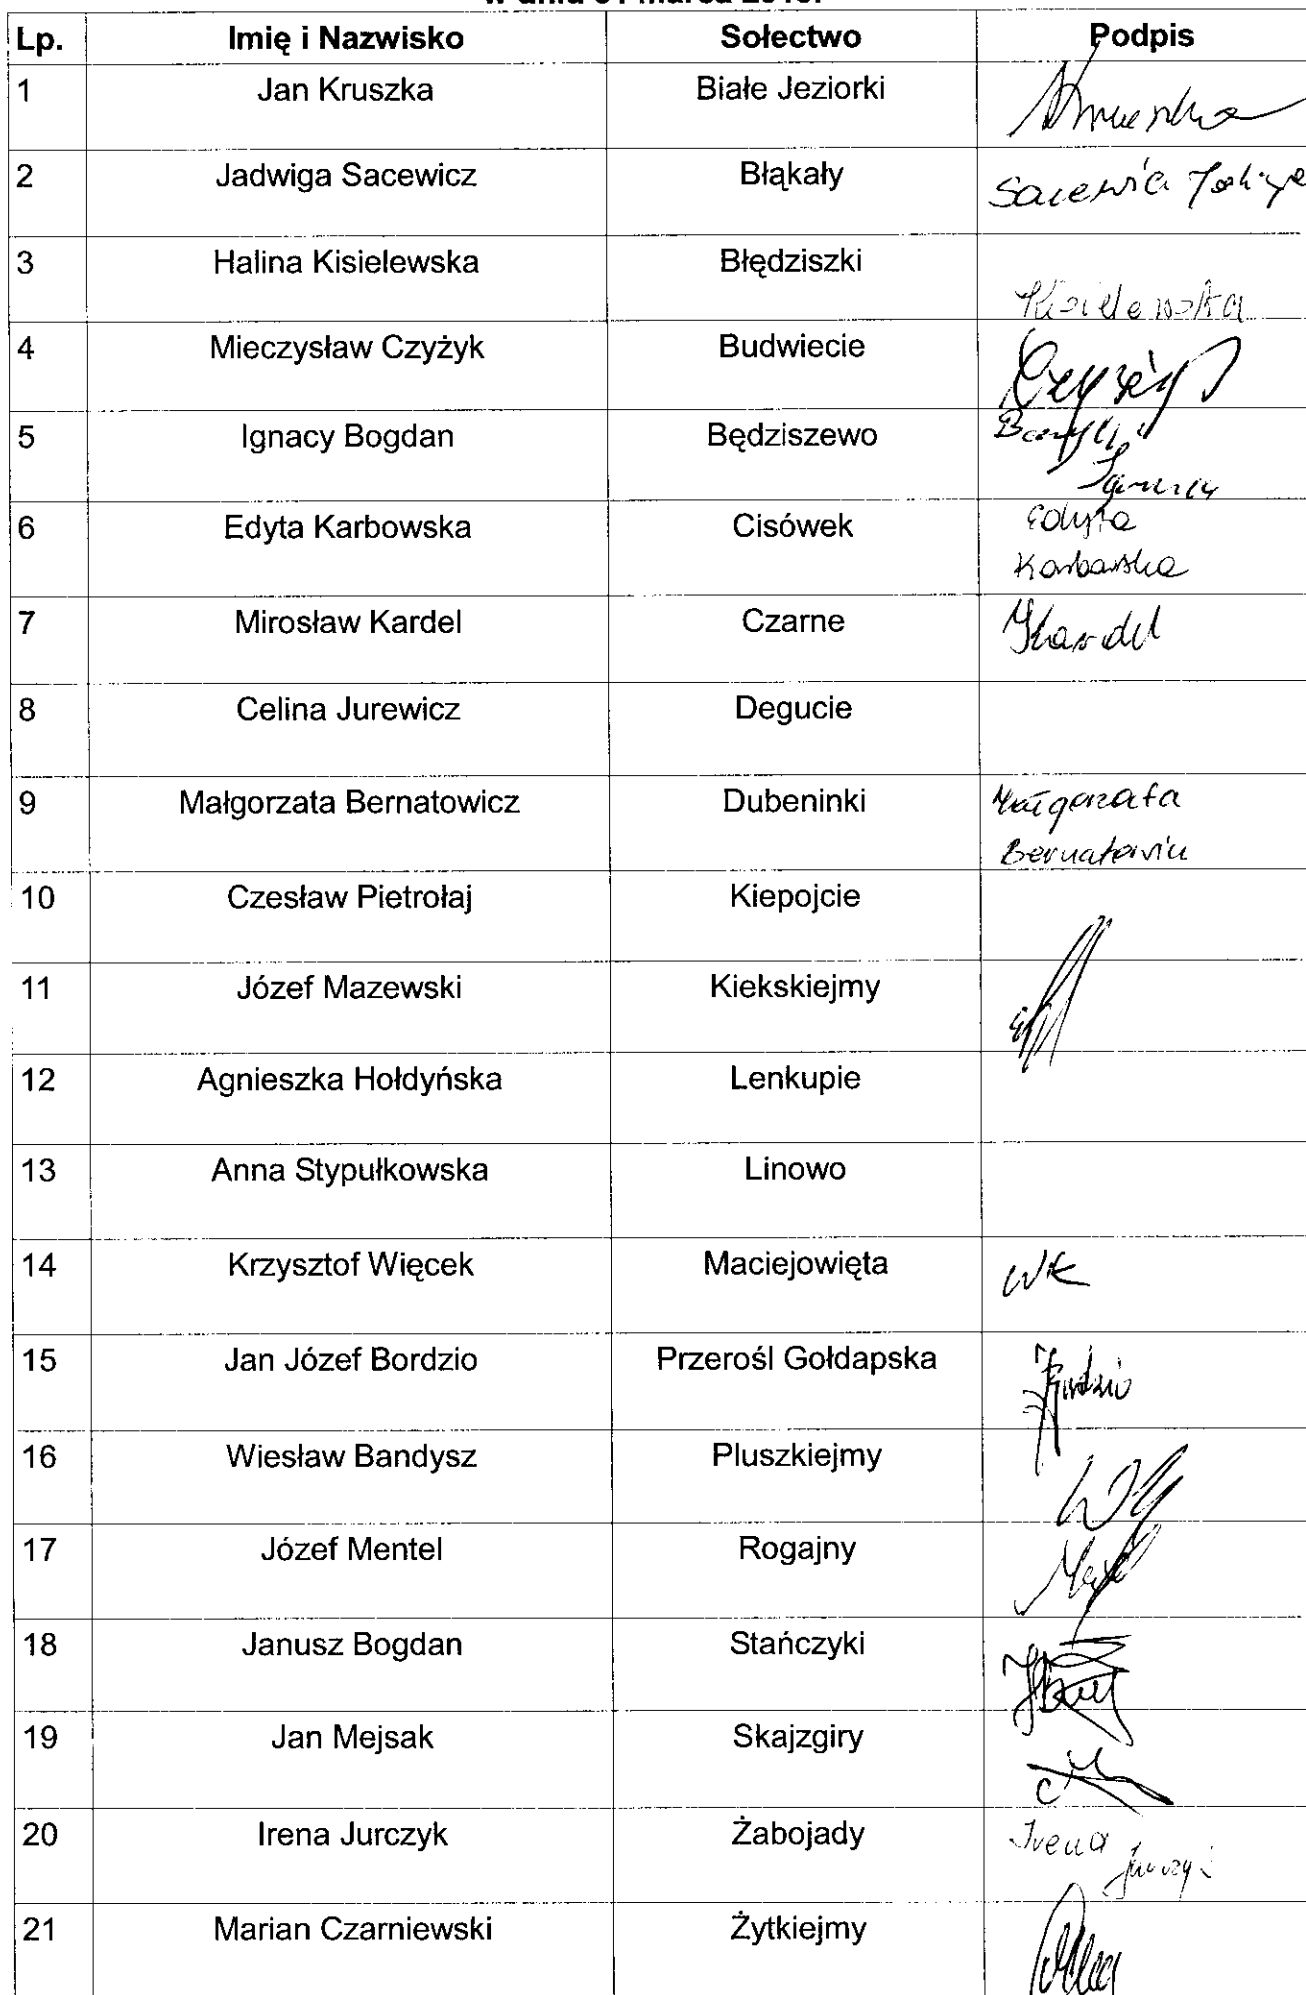 Lp. Imię i Nazwisko Sołectwo Podpis
1 Jan Kruszka Białe Jeziorki
2 Jadwiga Sacewicz Błąkały
3 Halina Kisielewska Błędziszki
Kisielewska
4 Mieczysław Czyżyk Budwiecie
5 Ignacy Bogdan Będziszewo
6 Edyta Karbowska Cisówek Edyta
Karbowska
7 Mirosław Kardel Czarne MKardel
8 Celina Jurewicz Degucie
9 Małgorzata Bernatowicz Dubeninki Małgorzata
Bernatowicz
10 Czesław Pietrołaj Kiepojcie
11 Józef Mazewski Kiekskiejmy
12 Agnieszka Hołdyńska Lenkupie
13 Anna Stypułkowska Linowo
14 Krzysztof Więcek Maciejowięta WK
15 Jan Józef Bordzio Przerośl Gołdapska JBordzio
16 Wiesław Bandysz Pluszkiejmy
17 Józef Mentel Rogajny
18 Janusz Bogdan Stańczyki
19 Jan Mejsak Skajzgiry
20 Irena Jurczyk Żabojady Irena
Jurczyk
21 Marian Czarniewski Żytkiejmy